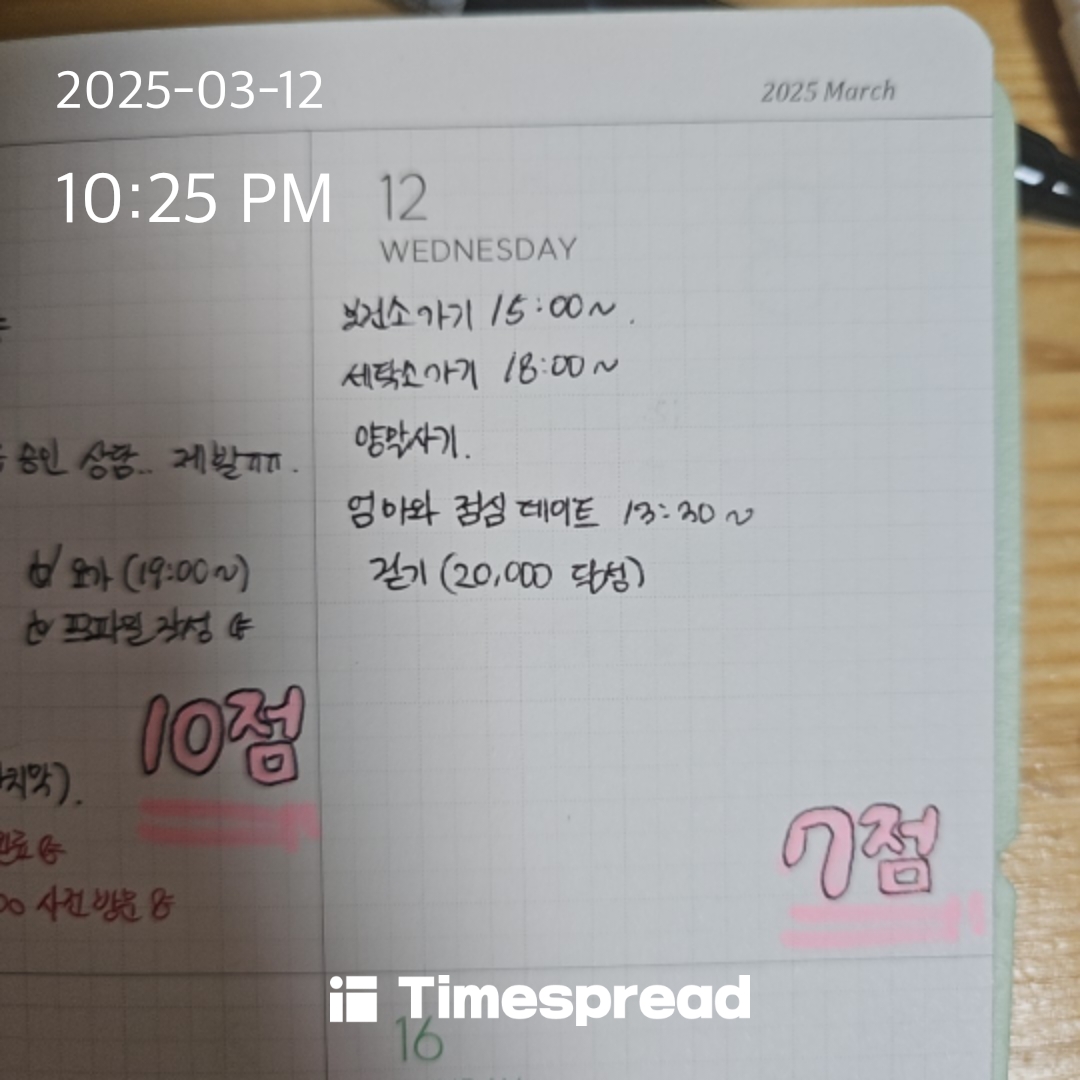 2025-03-12
10:25 PM
2025 March
12
WEDNESDAY
보건소가기 15:00~.
세탁소가기 18:00~
양말사기.
엄마와 점심 데이트 13:30~
걷기 (20,000 달성)
승인 상담.. 제발ㅠㅠ.
요가 (19:00~)
프로파일 작성
10점
지막).
완료
00 사전 방문
7점
Timespread
16